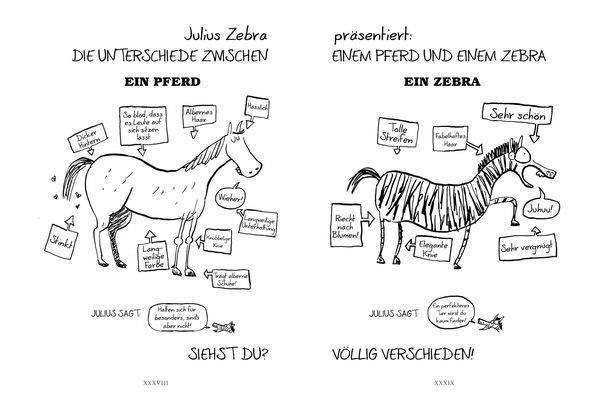 Julius Zebra
DIE UNTERSCHIEDE ZWISCHEN
EIN PFERD
Dicker
Hintern
So blöd, dass
es Leute auf
sich sitzen
lässt
Albernes
Haar
Hässlich
Wieher!
Langweilige
Unterhaltung
Stinkt
Lang-
weilige
Farbe
Knubbelige
Knie
Trägt alberne
Schuhe!
JULIUS SAGT
Halten sich für
besonders, sind's
aber nicht!
SIEHST DU?
XXXVIII
präsentiert:
EINEM PFERD UND EINEM ZEBRA
EIN ZEBRA
Tolle
Streifen
Fabelhaftes
Haar
Sehr schön
Juhuu!
Riecht
nach
Blumen!
Elegante
Knie
Sehr vergnügt
JULIUS SAGT
Ein perfekteres
Tier wirst du
kaum finden!
VÖLLIG VERSCHIEDEN!
XXXIX